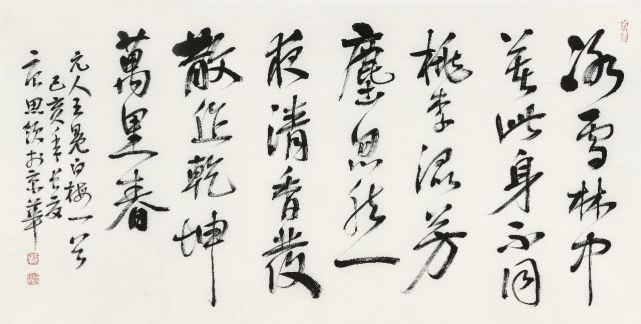 冰雪林中
著此身不同
桃李混芳
塵忽然一
夜清香發
散作乾坤
萬里春
元人王冕白梅一首
己亥
於京華